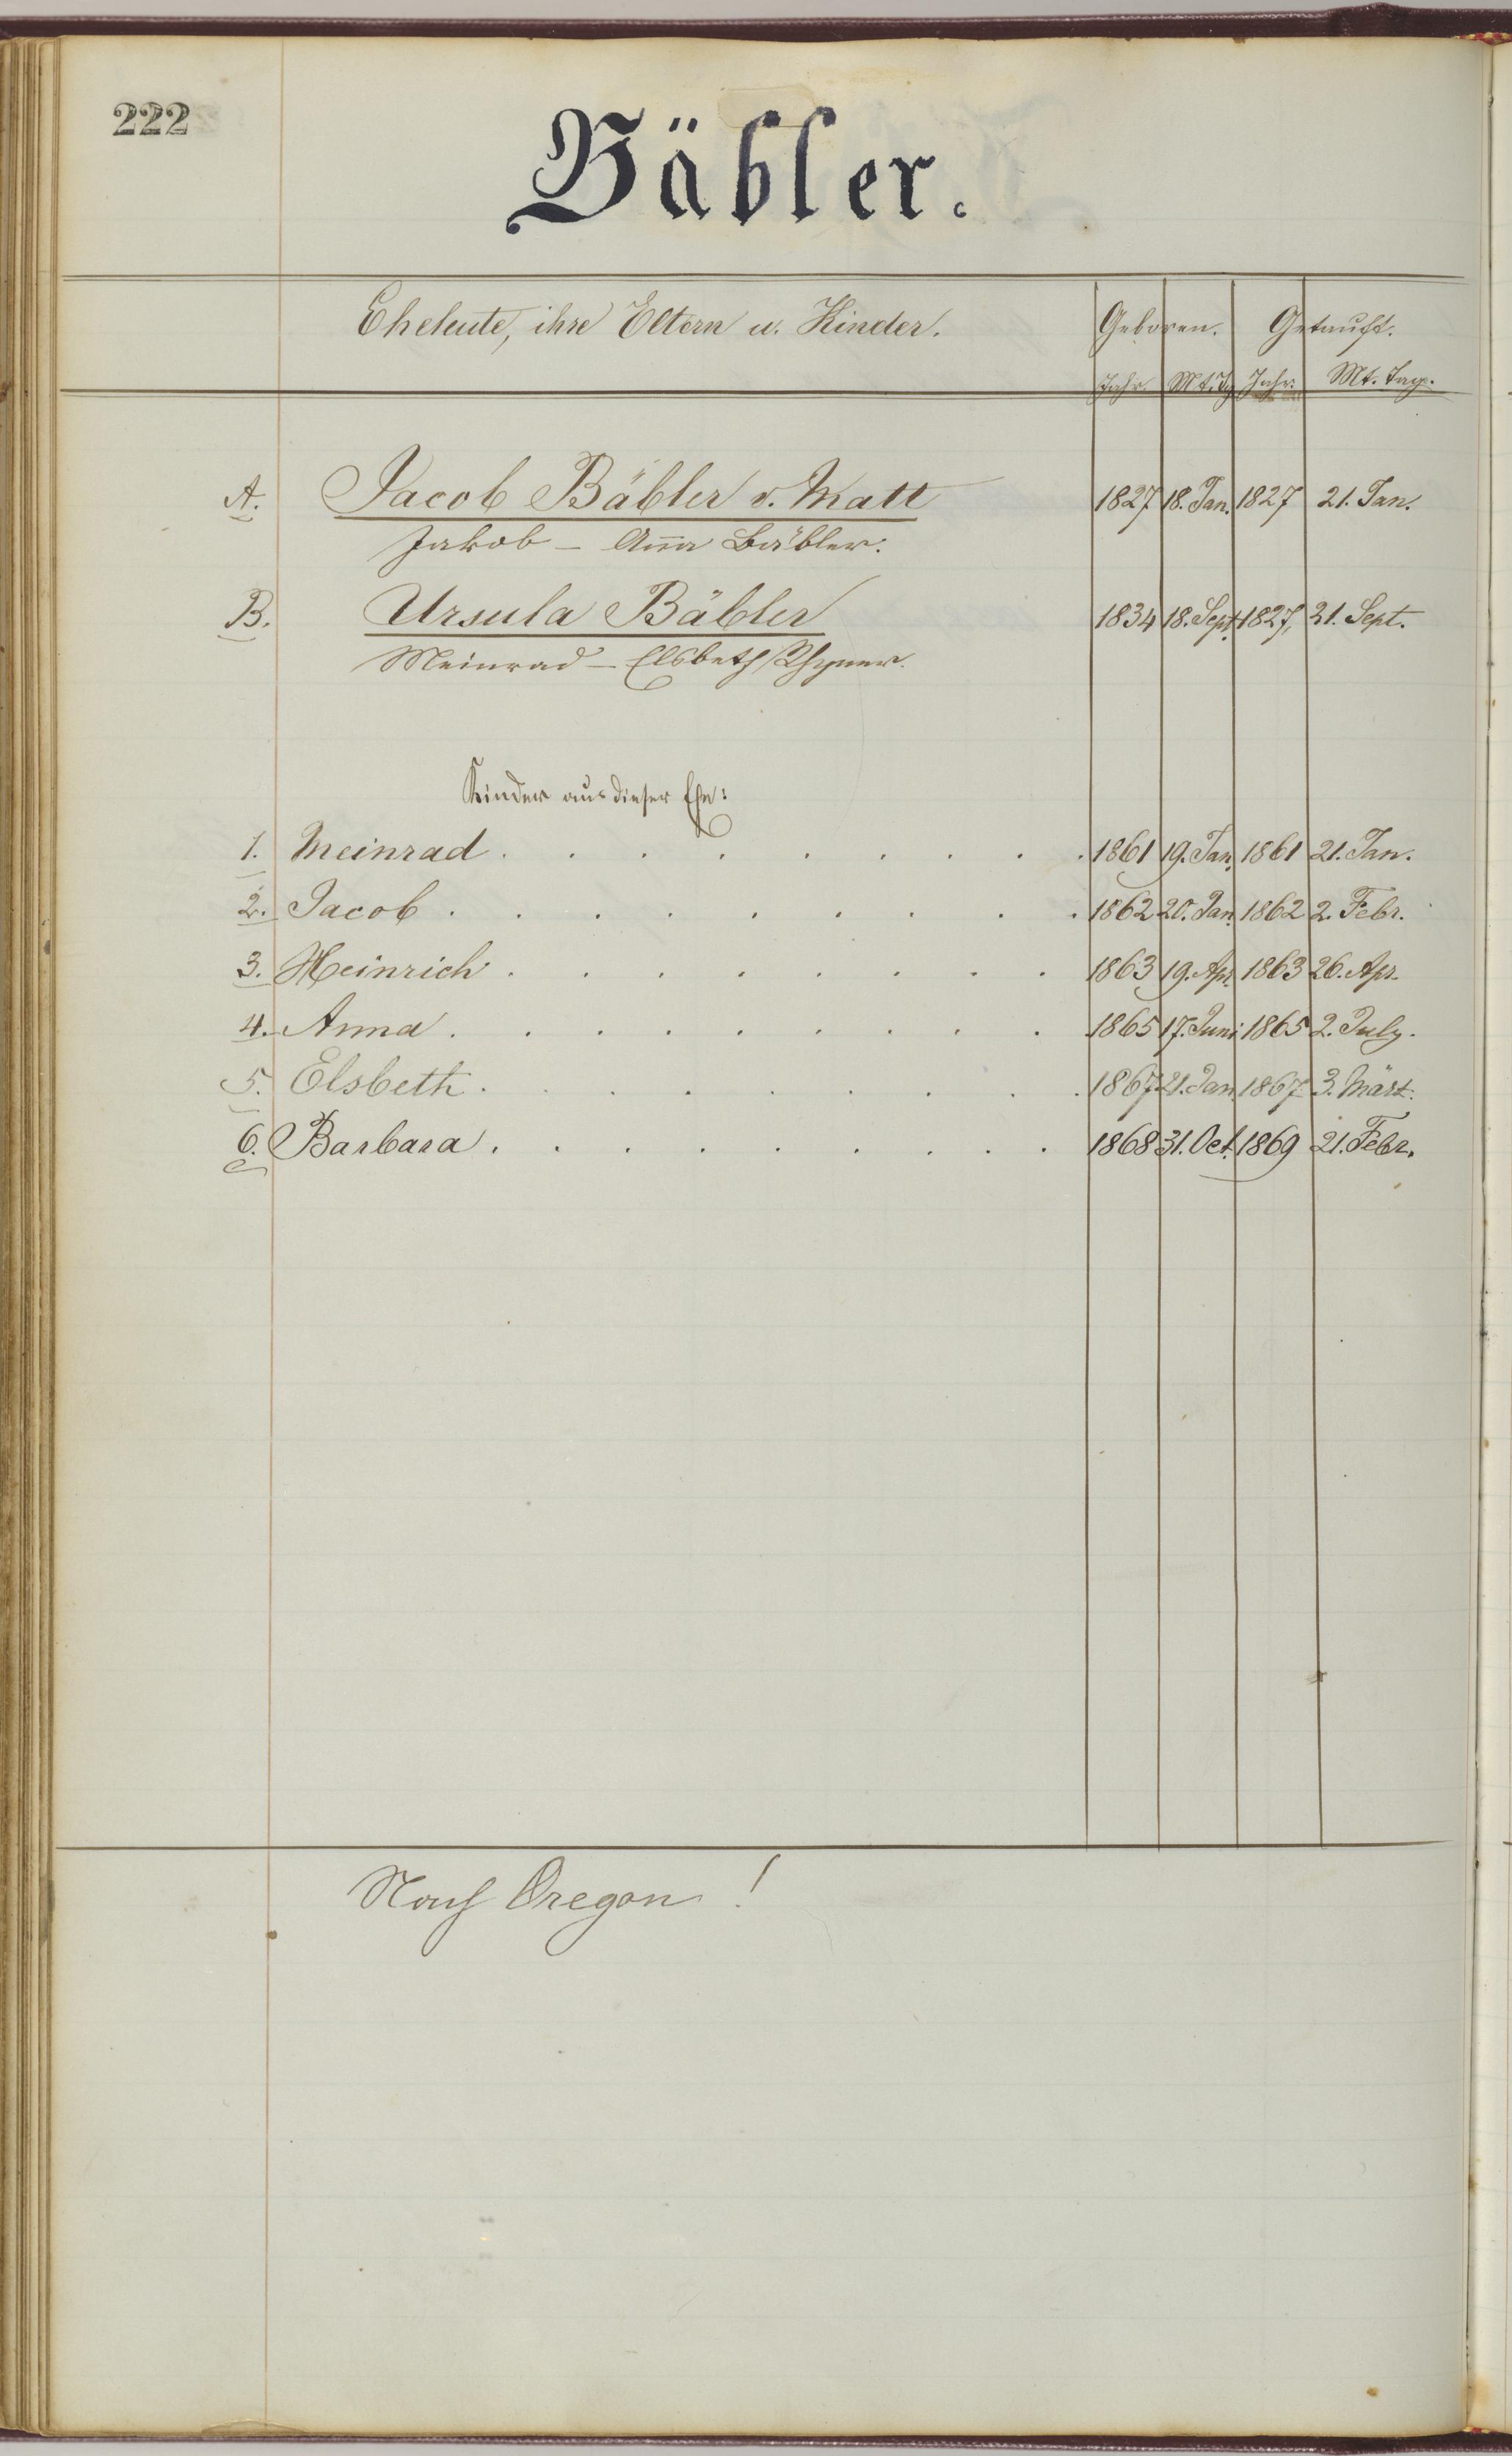 222
Bäbler.
Eheleute, ihre Eltern u. Kinder. Geboren. Getauft.
Jahr. Mt. Tg Jahr. Mt. Tag.
A. Jacob Bäbler v. Matt 1827 18. Jan. 1827 21. Jan.
Jakob - Aña Bäbler.
B. Ursula Bäbler 1834 18. Sept. 1827, 21. Sept.
Meinrad - Elsbeth Rhyner.
Kinder aus dieser Ehe:
1. Meinrad . . . . . . . . . 1861 19. Jan. 1861 21. Jan.
2. Jacob . . . . . . . . . 1862 20. Jan. 1862 2. Febr.
3. Heinrich . . . . . . . . 1863 19. Apr. 1863 26. Apr.
4. Anna . . . . . . . . . 1865 17. Juni 1865 2. July.
5. Elsbeth . . . . . . . . . 1867 21. Jan. 1867 3. März.
6. Barbara . . . . . . . . 1868 31. Oct. 1869 21. Febr.
Nach Oregon !